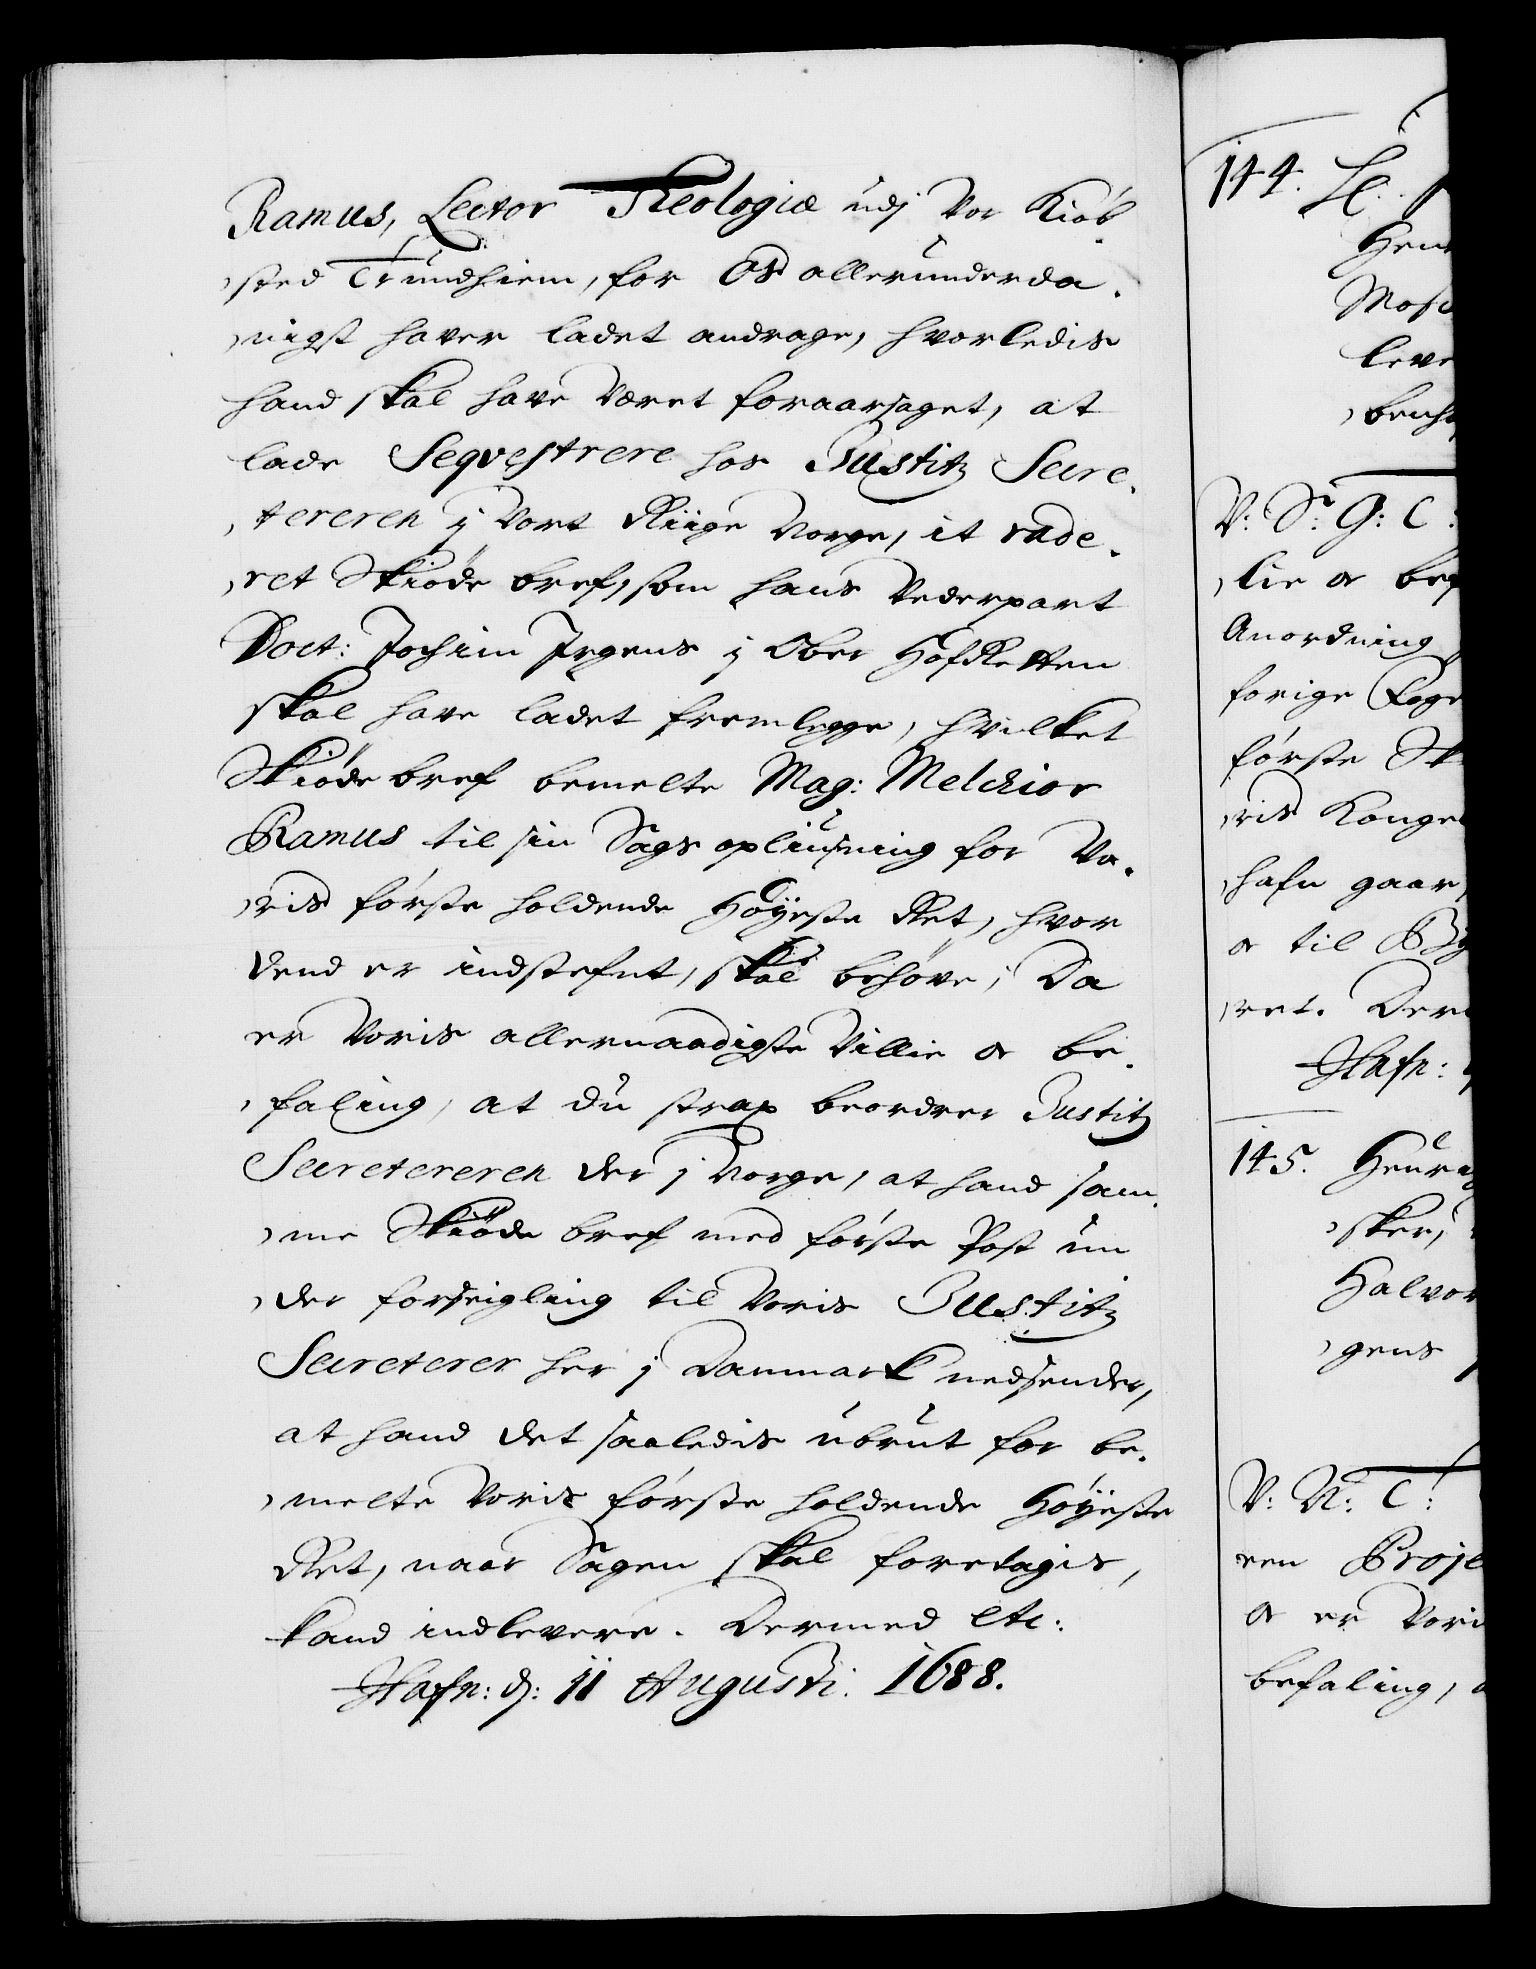 Ramus, Lector Theologiæ udj Vor Kiøb,
,sted Trundhiem, for Os allerunderda,
,nigst haver ladet andrage, hvorledis
hand skal have Været foraarsaget, at
lade Seqvestrere hos Justitz Secre,
,tereren ij Vort Riige Norge, it rade,
,ret Skiøde bref, som hans Vederpart
Doct: Jochim Irgens ij Ober HofRetten
skal have ladet fremlegge, hvilket
Skiøde bref bemelte Mag: Melchior
Ramus til sin Sags opliusning for Vo,
,ris første holdende Høyeste Ret, hvor
dend er indstefnt, skal behøve; Da
er Voris allernaadigste Villie oc be,
,faling, at du strax beordrer Justitz
Secretereren der j Norge, at hand sam,
,me Skiøde bref med første Post un
,der forseigling til Voris Justitz
Secreterer her j Danmark nedsender,
at hand det saaledis ubrut for be,
,melte Voris første holdende Høyeste
Ret, naar Sagen skal foretagis,
kand indlevere. Dermed etc:
Hafn: d: 11 Augusti. 1688.
144.
Hen
Mos
leve
,bensh
V: Sr: G: C:
,lie oc bef
Anordning
forige Foge
første Sk
,ris Konge
,hafn gaar,
oc til By
,ret. Der
Hafn:
145. Heur
,sker,
Halvor
,gens
V: N: T:
ren Proje
oc er Vori
befaling,